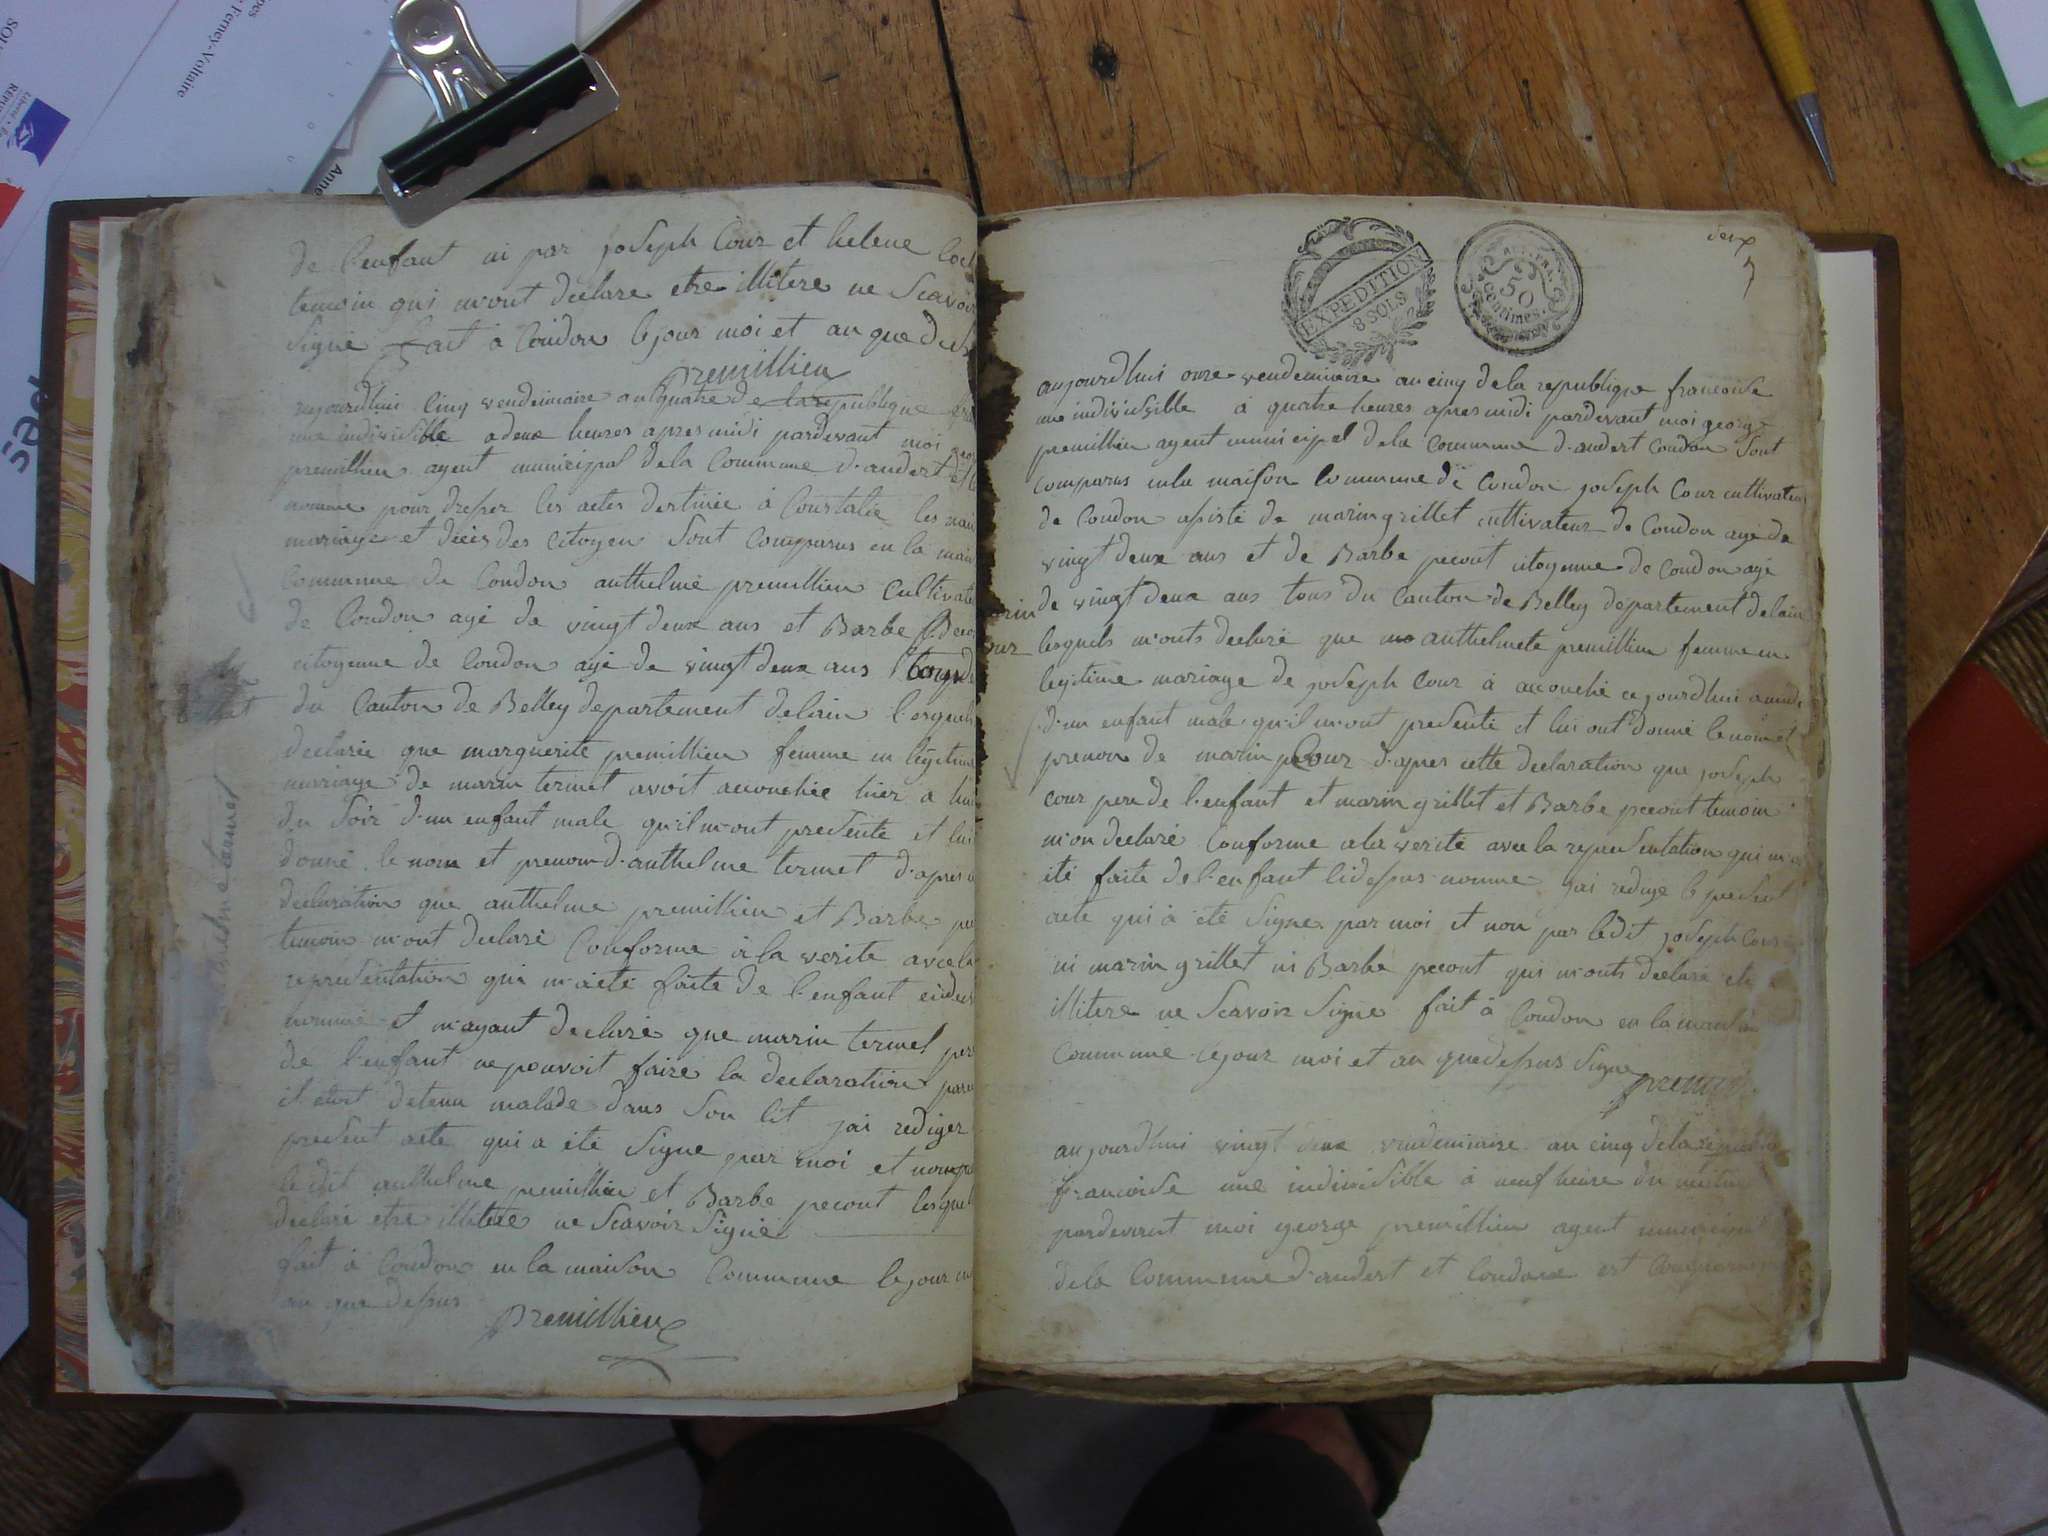 de l'enfant ni par joseph Cour et helene
temoin qui m'ont declare etre illitere ne Scavoir
Signe fait à Condon le jour moi et an que
Premillieu
aujourdhui cinq vendemiaire an quatre de la republique
une indivisible a deux heures apres midi pardevant moi
premillieu agent municipal de la Commune d'andert et
nomme pour dresser les actes destinée à Constater les
mariage et décès des Citoyen Sont Comparus en la
Commune de Condon anthelme premillieu Cultivate
de Condon agé de vingt deux ans et Barbe
citoyenne de Condon agé de vingt deux ans
du Canton de Belley departement de lain
declarée que marguerite premillieu femme en legitime
mariage de marin termet avoit accouchée hier a
du Soir d'un enfant male qu'il m'ont presente et lui
donné le nom et prenom d'anthelme termet d'apres
declaration que anthelme premillieu et Barbe
temoin m'ont declaré Conforme à la verite avec la
representation qui m'aété faite de l'enfant
nommé et m'ayant declaré que marin termet
de l'enfant ne pouvoit faire la declaration
il étoit detenu malade dans Son lit jai rediger
present acte qui a été Signe par moi et
ledit anthelme premillieu et Barbe pecout
declare etre illitere ne Scavoir Signé
fait à Condon en la maison Commune le jour
an que dessus
Premillieu
anthelme termet
deux
EXPEDITION
8 SOLS
50
Centimes
aujourdhui onze vendemiaire an cinq de la republique francoise
une indivisible à quatre heures apres midi pardevant moi george
premillieu agent municipal dela Commune d'andert Condon Sont
comparus en la maison Commune de Condon joseph Cour cultivateur
de Condon assisté de marin grillet cultivateur de Condon agé de
vingt deux ans et de Barbe pecout citoyenne de Condon agé
de vingt deux ans tous du Canton de Belley departement de lain
lesquels m'onts declaré que anthelmete premillieu femme en
legitime mariage de joseph Cour à accouché ce jourdhui
d'un enfant male qu'il m'ont presenté et lui ont donné le nom et
prenom de marin Cour d'apres cette declaration que joseph
cour pere de l'enfant et marin grillet et Barbe pecout temoin
m'on declaré Conforme a la verité avec la representation qui m'a
été faite de l'enfant nommé jai redige le present
acte qui à été Signe par moi et non par ledit joseph Cour
ni marin grillet ni Barbe pecout qui m'onts declaré etre
illitere ne Scavoir Signe fait à Condon en la maison
Commune le jour moi et an que dessus Signe
aujourdhui vingt deux vendemiaire an cinq de la
francoise une indivisible à neuf heure du matin
pardevant moi george premillieu agent municipal
dela Commune d'andert et Condon est